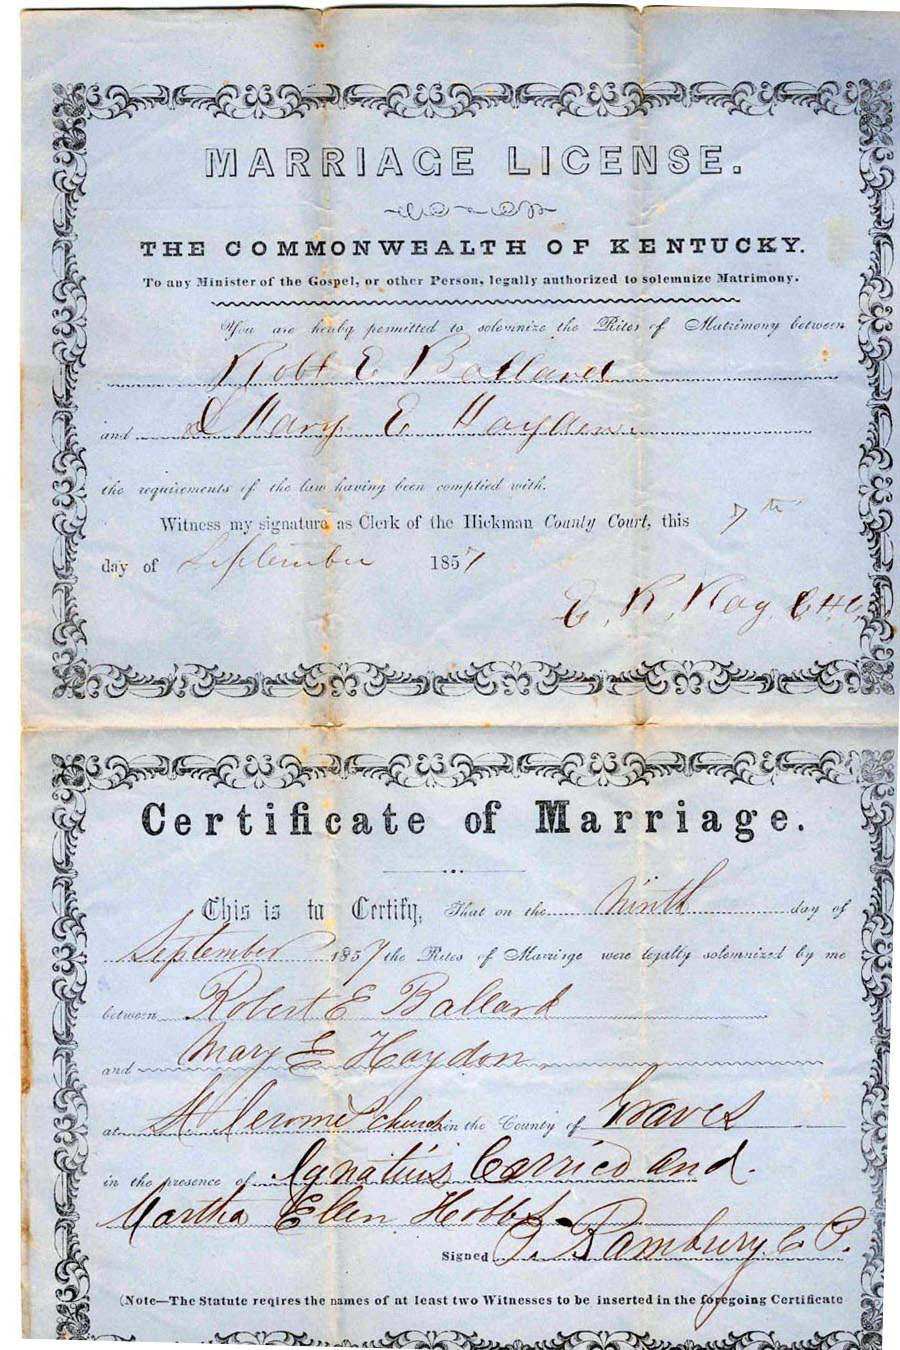 MARRIAGE LICENSE.
THE COMMONWEALTH OF KENTUCKY.
To any Minister of the Gospel, or other Person, legally authorized to solemnize Matrimony.
You are hereby permitted to solemnize the Rites of Matrimony between
Robt E Ballard
and Mary E Hayden
the requirements of the law having been complied with.
Witness my signature as Clerk of the Hickman County Court, this 7th
day of September 1857
E. R. Ray
Certificate of Marriage.
This is to Certify, That on the ninth day of
September 1857 the Rites of Marriage were legally solemnized by me
between Robert E Ballard
and Mary E Haydon
at St. Jerome's church in the County of Graves
in the presence of Ignatius Carrico and
Martha Ellen Hobbs
Signed
(Note—The Statute reqires the names of at least two Witnesses to be inserted in the foregoing Certificate